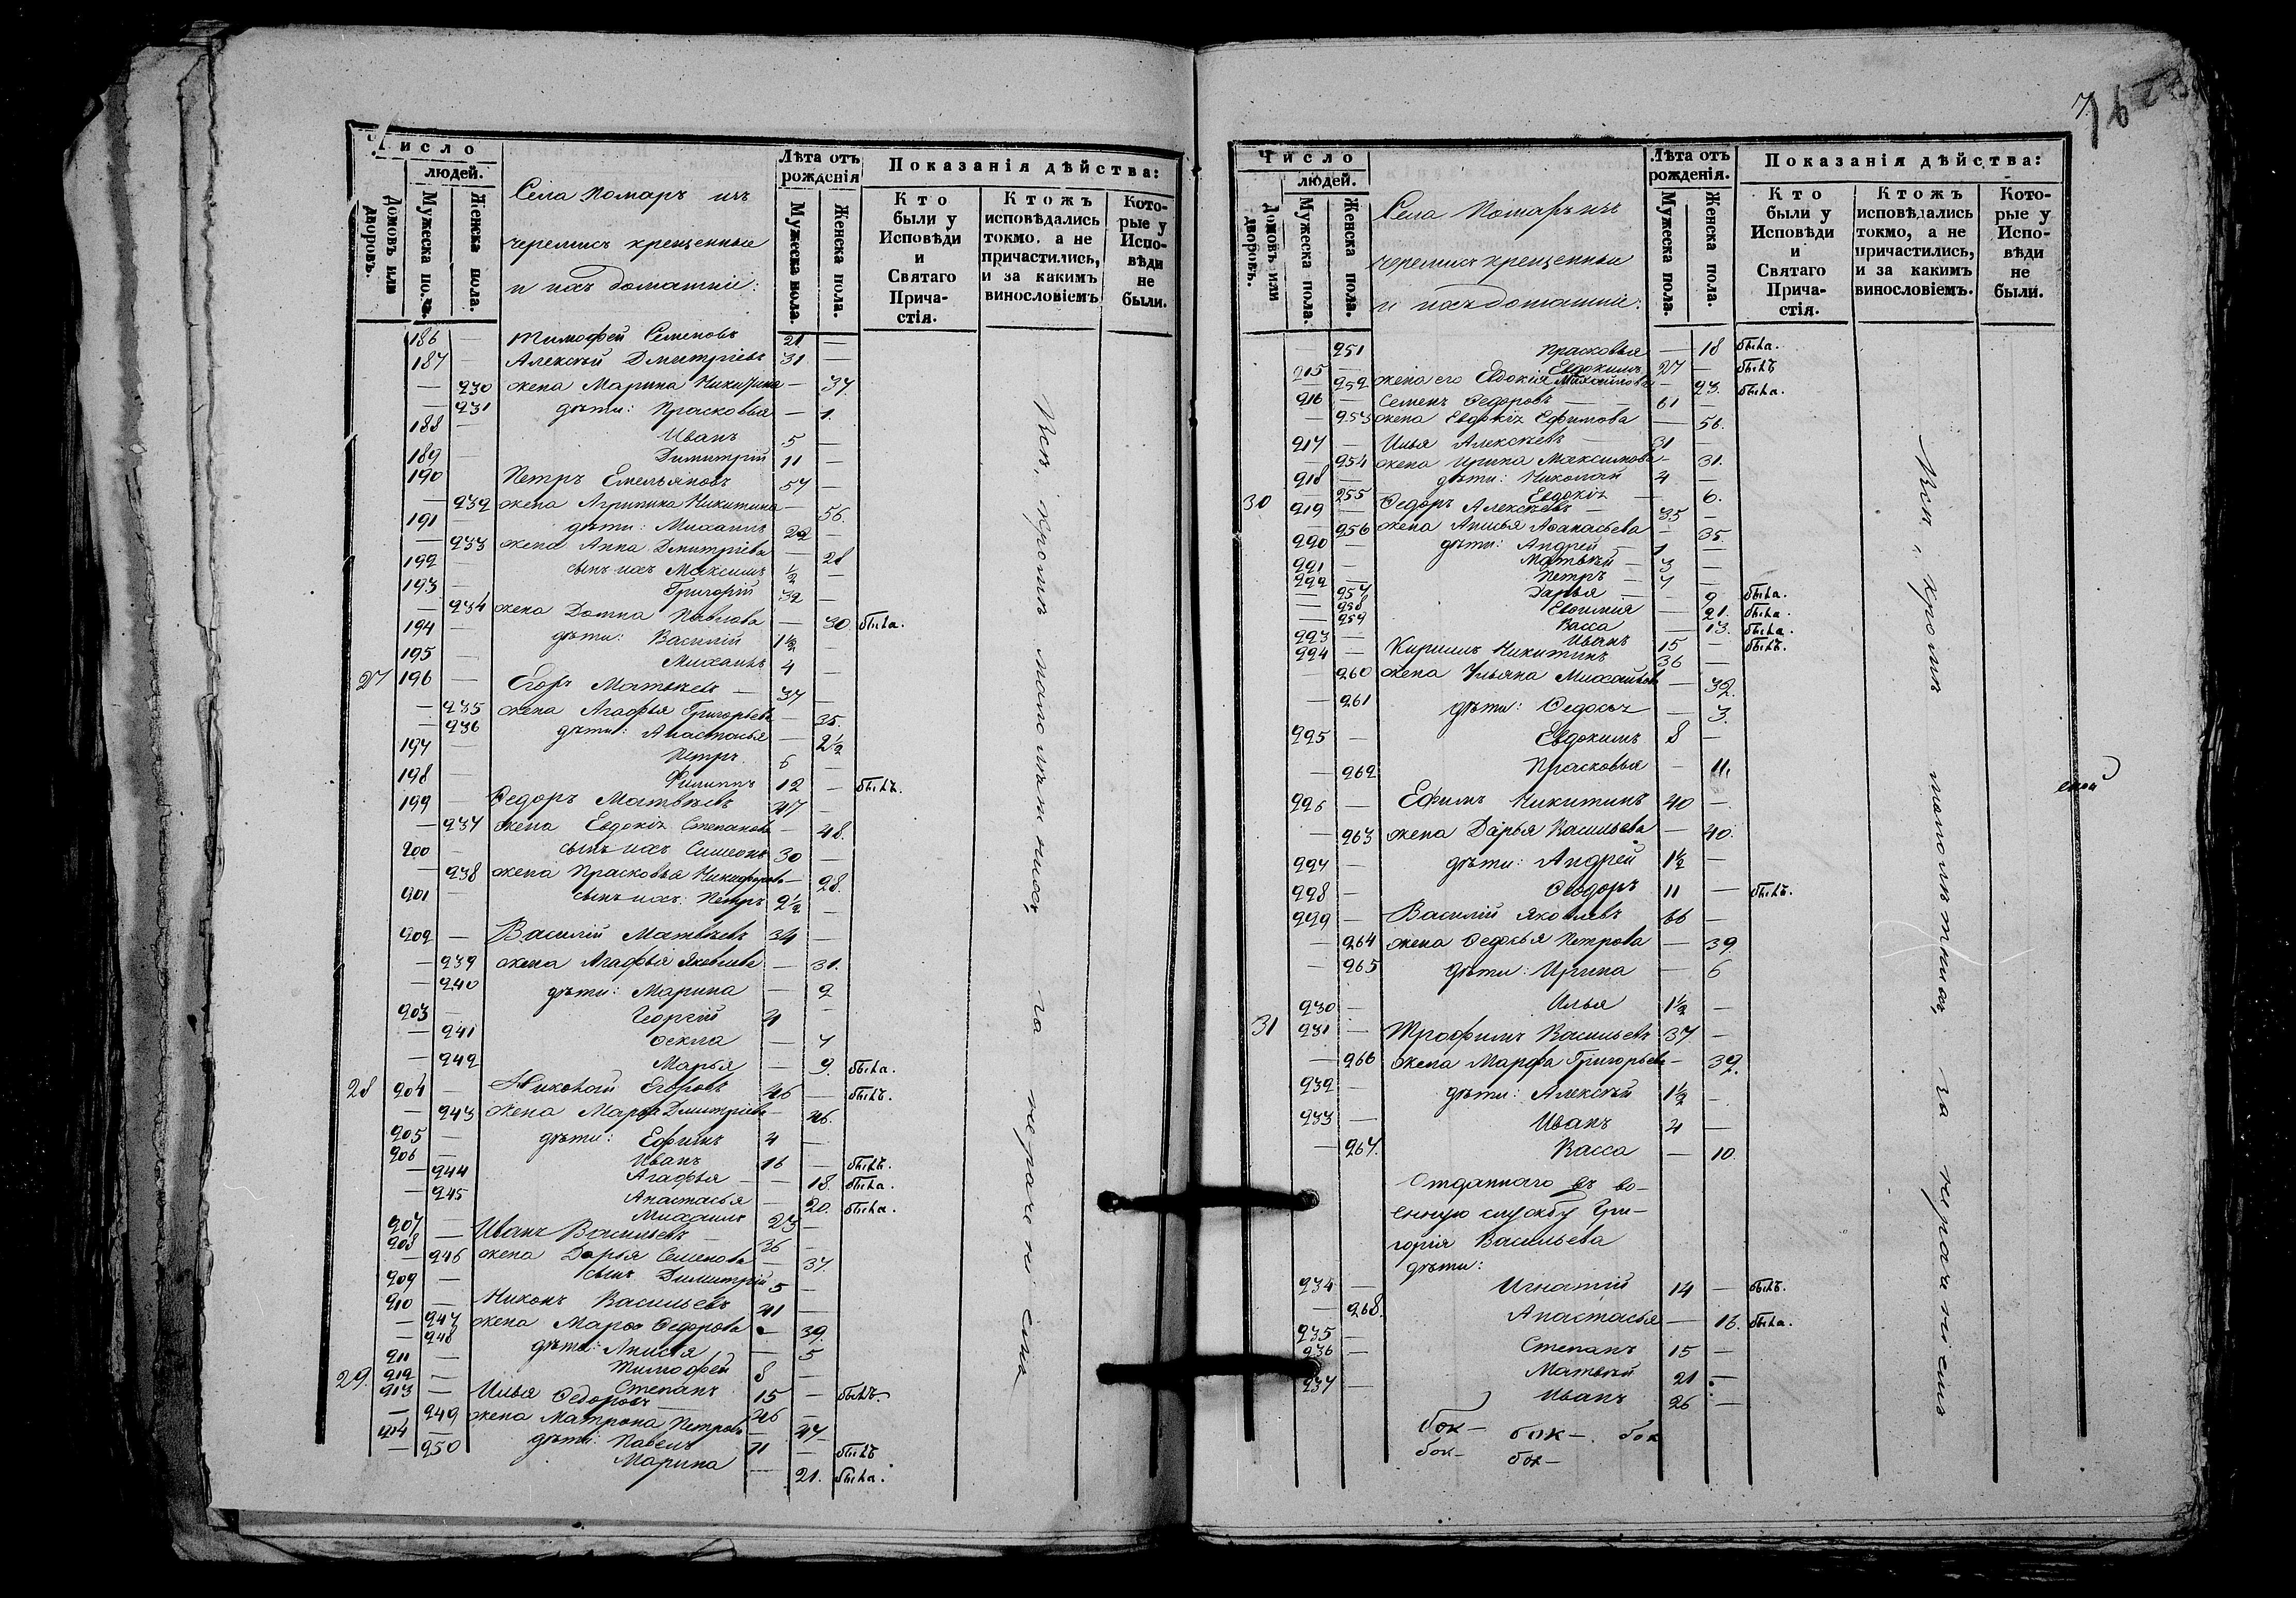 Число
людей.
Домовъ или дворовъ.
Мужеска пола.
Женска пола.
Села Помаръ изъ
черемисъ крещенные
и ихъ домашніе:
Лѣта отъ рожденія
Мужеска пола.
Женска пола.
Показанія дѣйства:
Кто были у Исповѣди и Святаго Причастія.
Ктожъ исповѣдались токмо, а не причастились, и за какимъ винословіемъ
Которые у Исповѣди не были.
186 — Тимофей Семеновъ 21 —
187 — Алексѣй Дмитріевъ 31 —
— 230 жена Марина Никитина — 37.
— 231 дѣти: Прасковья — 1.
188 — Иванъ 5 —
189 — Димитрій 11 —
190 Петръ Емельяновъ 57 —
— 232 жена Агрипина Никитина — 56.
191 — дѣти: Михаилъ 22 —
— 233 жена Анна Дмитріева — 28
192 — сынъ ихъ Максимъ ½ —
193 — Григорій 32 —
— 234 жена Домна Павлова — 30. была.
194 — дѣти: Василій 1½ —
195 — Михаилъ 4 —
27 196 — Егоръ Матвѣевъ — 37 —
— 235 жена Агафья Григорьева — 35.
— 236 дѣти: Анастасья — 2½
197 — Петръ 6 —
198 — Филиппъ 12 — былъ.
199 — Федоръ Матвѣевъ 47 —
— 237 жена Евдокія Степанова — 48.
200 — сынъ ихъ Симеонъ 30 —
— 238 жена Прасковья Никифорова — 28.
201 — сынъ ихъ: Петръ 2½ —
202 — Василій Матвѣевъ 34 —
— 239 жена Агафья Яковлева — 31.
— 240 дѣти: Марина — 2
203 — Георгій 4 —
— 241 Өекла — 7
— 242 Марья — 9. была.
28 204 — Николай Егоровъ 46 — былъ.
— 243 жена Марья Дмитріева — 46.
205 — дѣти: Ефимъ 4 —
206 — Иванъ 16 — былъ.
— 244 Агафья — — 18. была.
— 245 Анастасья — 20. была.
207 — Михаилъ 23 —
208 — Иванъ Васильевъ — 36 —
— 246 жена Дарья Семенова — 37.
209 — сынъ Димитрій 5 —
210 — Никонъ Васильевъ 41 —
— 247 жена Марья Федорова — 39.
— 248 дѣти: Анисія — 5
211 — Тимофей 8 —
212 — Степанъ 15 — былъ.
29. 213 — Илья Федоровъ — 46 —
— 249 жена Матрона Петрова — 47
214 — дѣти: Павелъ 11 — былъ
— 250 Марина — 21. была.
Всѣ, кромѣ малолѣтнихъ, за нераченіемъ
7
Число
людей.
Домовъ или дворовъ.
Мужеска пола.
Женска пола.
Села Помаръ изъ
черемисъ крещенные
и ихъ домашніе:
Лѣта отъ рожденія.
Мужеска пола.
Женска пола.
Показанія дѣйства:
Кто были у Исповѣди и Святаго Причастія.
Ктожъ исповѣдались токмо, а не причастились, и за какимъ винословіемъ.
Которые у Исповѣди не были.
251 Прасковья — 18 была.
215 — Евдокимъ 27 — былъ
— 252 жена его Евдокія Михайлова — 23. была.
216 — Семенъ Федоровъ — 61 —
— 253 жена Евдокія Ефимова — 56.
217 — Илья Алексѣевъ — 31 —
— 254 жена Ирина Максимова — 31.
218 — дѣти: Николай 4 —
— 255 Евдокія — 6.
30 219 — Федоръ Алексѣевъ — 35 —
— 256 жена Анисья Афанасьева — 35.
220 — дѣти: Андрей — 1 —
221 — Матвѣй — 3 —
222 — Петръ — 7 —
— 257 Дарья — — 9 была.
— 258 Евфимія — 21. была.
— 259 Васса — 13. была.
223 — Иванъ 15 — былъ.
224 — Кириллъ Никитинъ 36 —
— 260 жена Ульяна Михайлова — 32.
— 261 дѣти: Федосья — 3.
225 — Евдокимъ 8 —
— 262 Прасковья — 11.
226 — Ефимъ Никитинъ 40 —
— 263 жена Дарья Васильева — 40.
227 — дѣти: Андрей 1½ —
228 — Өеодоръ 11 — былъ.
229 — Василій Яковлевъ 66 —
— 264 жена Федосья Петрова — 39.
— 265 дѣти: Ирина — 6
230 — Илья 1½ —
31 231 — Трофимъ Васильевъ 37 —
— 266 жена Марфа Григорьева — 32.
232 — дѣти: Алексѣй 1½ —
233 — Иванъ 4 —
— 267. Васса — 10.
Отданнаго въ во-
енную службу Гри-
горія Васильева
дѣти:
234 — Игнатій 14 — былъ.
— 268. Анастасья — 16. была.
235 — Степанъ 15 —
236 — Матвѣй 21 —
237 — Иванъ 26 —
бок— бок— бок
бок— бок—
Всѣ, кромѣ малолѣтнихъ, за нераченіемъ